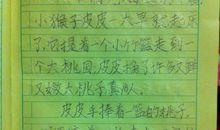 小猴子皮皮一大早就起床
了,它提着一个小竹篮走到一
个大桃园,皮皮摘了许多又甜
又嫩大桃子真
皮皮手捧着一篮的桃子,